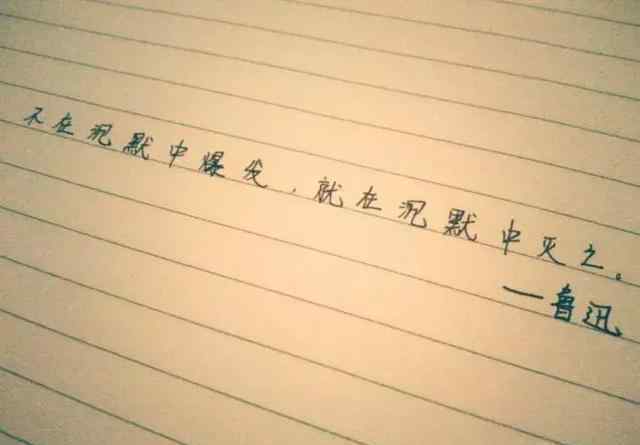 不在沉默中爆发，就在沉默中灭亡。
—鲁迅